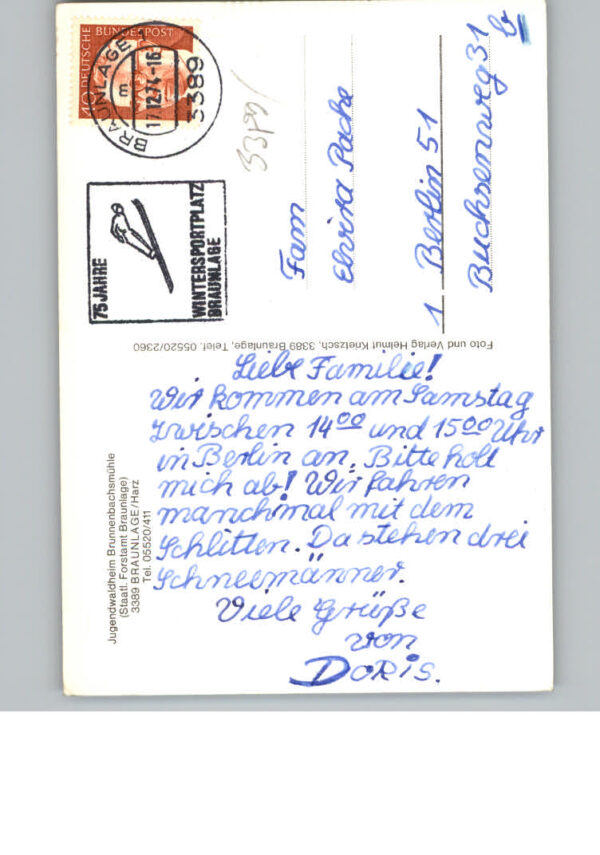 40 DEUTSCHE BUNDESPOST
BRAUNLAGE 1
m
17.12.74-16
3389
75 JAHRE
WINTERSPORTPLATZ
BRAUNLAGE
Fam
Elvira Pache
1 Berlin 51
Buchsenweg 31
b
Foto und Verlag Helmut Knetzsch, 3389 Braunlage, Telef. 05520/2360
Liebe Familie!
Wir kommen am Samstag
zwischen 14 00 und 15 00 Uhr
in Berlin an. Bitte holt
mich ab! Wir fahren
manchmal mit dem
Schlitten. Da stehen drei
Schneemänner.
Viele Grüße
von
DORIS.
Jugendwaldheim Brunnenbachsmühle
(Staatl. Forstamt Braunlage)
3389 BRAUNLAGE/Harz
Tel. 05520/411